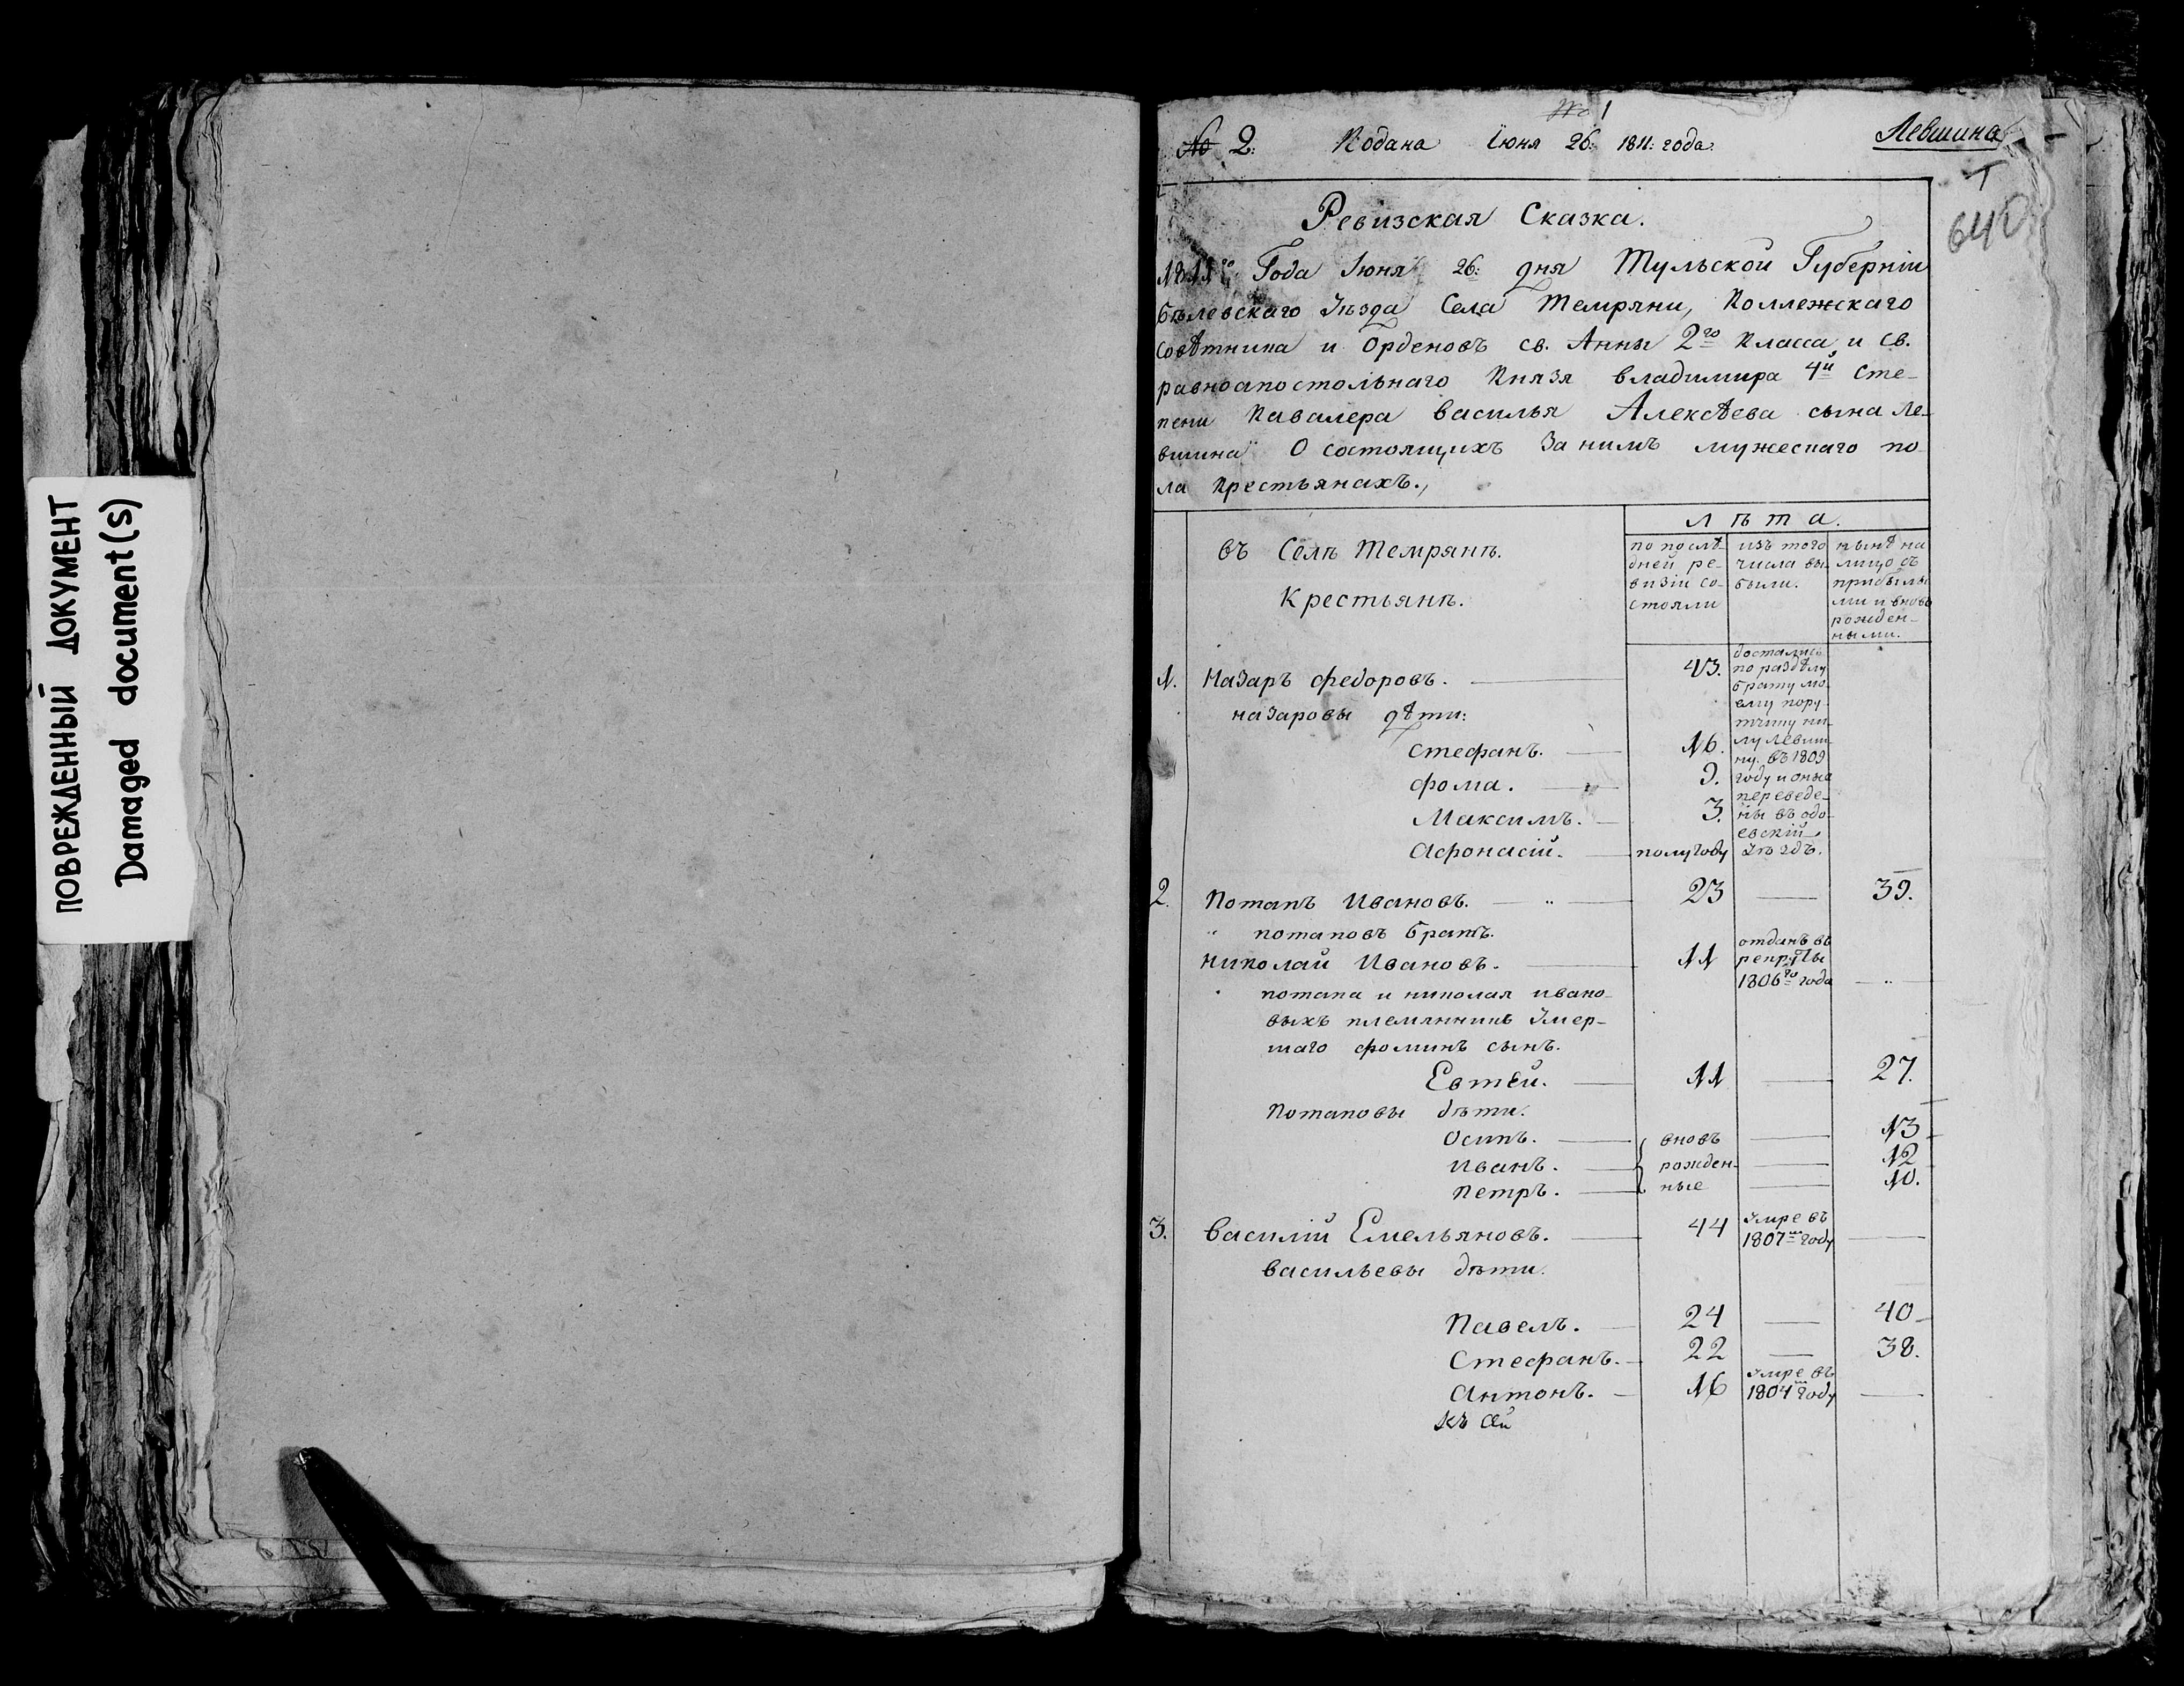 ПОВРЕЖДЕННЫЙ ДОКУМЕНТ
Damaged document(s)
№ 1
№ 2: Подана Іюня 26: 1811: года. Левшина
640
Ревизская Сказка.
1811го Года Іюня 26: дня Тульской Губерніи
Бѣлевскаго Уѣзда Села Темряни, Коллежскаго
Совѣтника и Орденовъ св. Анны 2го Класса и св.
равноапостольнаго Князя Владимира 4й Сте-
пени Кавалера Василья Алексѣева сына Ле-
вшина О состоящихъ За нимъ мужескаго по
ла Крестьянахъ.,
лѣта.
въ Селѣ Темрянѣ.
Крестьянѣ.
по послѣ-
дней ре-
визіи со-
стояли
изъ того
числа вы-
были.
нынѣ на
лицо съ
прибылы
ми и вновь
рожден-
ными.
1. Назаръ Федоровъ. 43.
достались
по раздѣлу
брату мо-
ему пору-
тчику ки-
лу левши-
ну. въ 1809
году и оные
переведе-
ны въ одо-
евскій
Уѣздъ.
назаровы дѣти:
Стефанъ. 16.
Фома. 9.
Максимъ. 3.
Афонасій. полугоду
2. Потапъ Ивановъ. 23 39.
потаповъ братъ.
Николай Ивановъ. 11 отданъ въ
рекруты
1806го года
потапа и николая ивано-
выхъ племянникъ Умер-
шаго фоминъ сынъ.
Евтѣй. 11 27.
Потаповы дѣти.
Осипъ. вновь 13
Иванъ. рожден- 12
Петръ. ные 10.
3. Василій Емельяновъ. 44 Умре въ
1807м году
Васильевы дѣти.
Павелъ. 24 40
Стефанъ. 22 38.
Антонъ. 16 Умре въ
1804м году
Къ сей